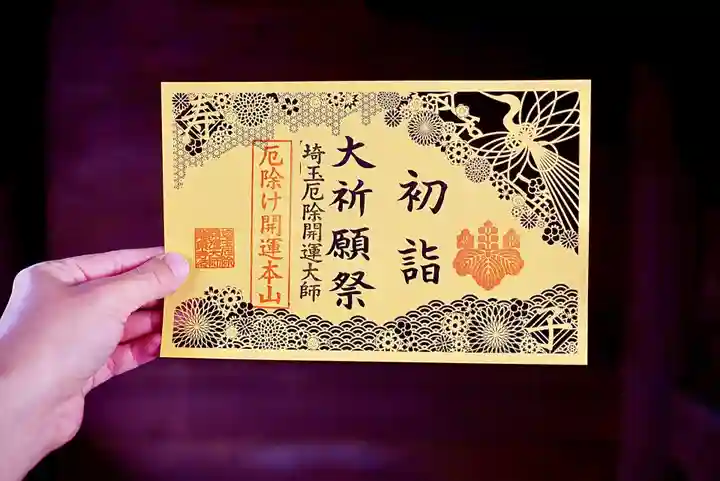 初詣
大祈願祭
埼玉厄除開運大師
厄除け開運本山
奉